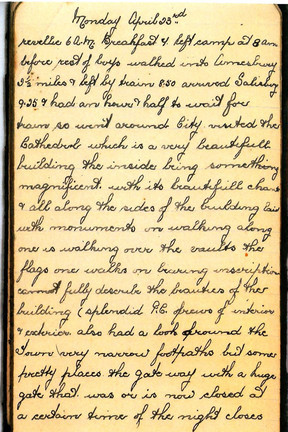 Monday April 23rd
reveille 6 A.M. Breakfast & left camp at 8 am
before rest of boys walked into Amesbury
2½ miles & left by train 8.50 arrived Salisbury
9.25 & had an hour & half to wait for
train so went around City visited the
Cathedral which is a very beautifull
building the inside being something
magnificent with its beautifull
& all along the sides of the building laid
with monuments on walking along
one is walking over the vaults the
flags one walks on buring inscription
cannot fully describe the beauties of the
building (splendid P.C. views of interior
& exterior also had a look around the
Town very narrow footpaths but some
pretty places. the gate way with a huge
gate that was or is now closed at
a certain time of the night closes